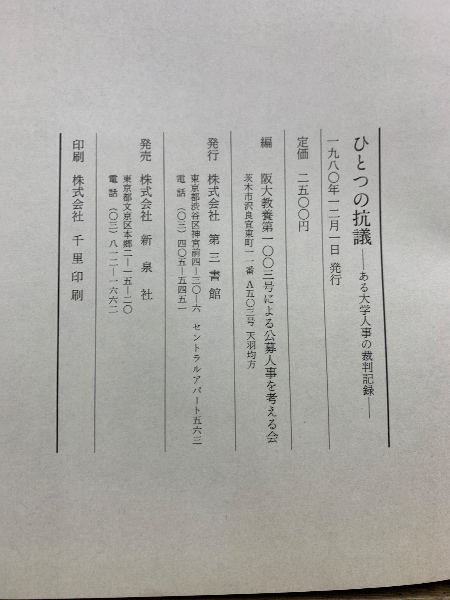 ひとつの抗議――ある大学人事の裁判記録――
一九八〇年一二月一日 発行
定価 二五〇〇円
編 阪大教養第一〇〇三号による公募人事を考える会
茨木市沢良宜東町一一番 A五〇三号 天羽均方
発行 株式会社 第三書館
東京都渋谷区神宮前四―二〇―六 セントラルアパート五六三
電話(〇三)四〇五―五四五一
発売 株式会社 新泉社
東京都文京区本郷二―一五―二〇
電話(〇三)八一二―一六六二
印刷 株式会社 千里印刷